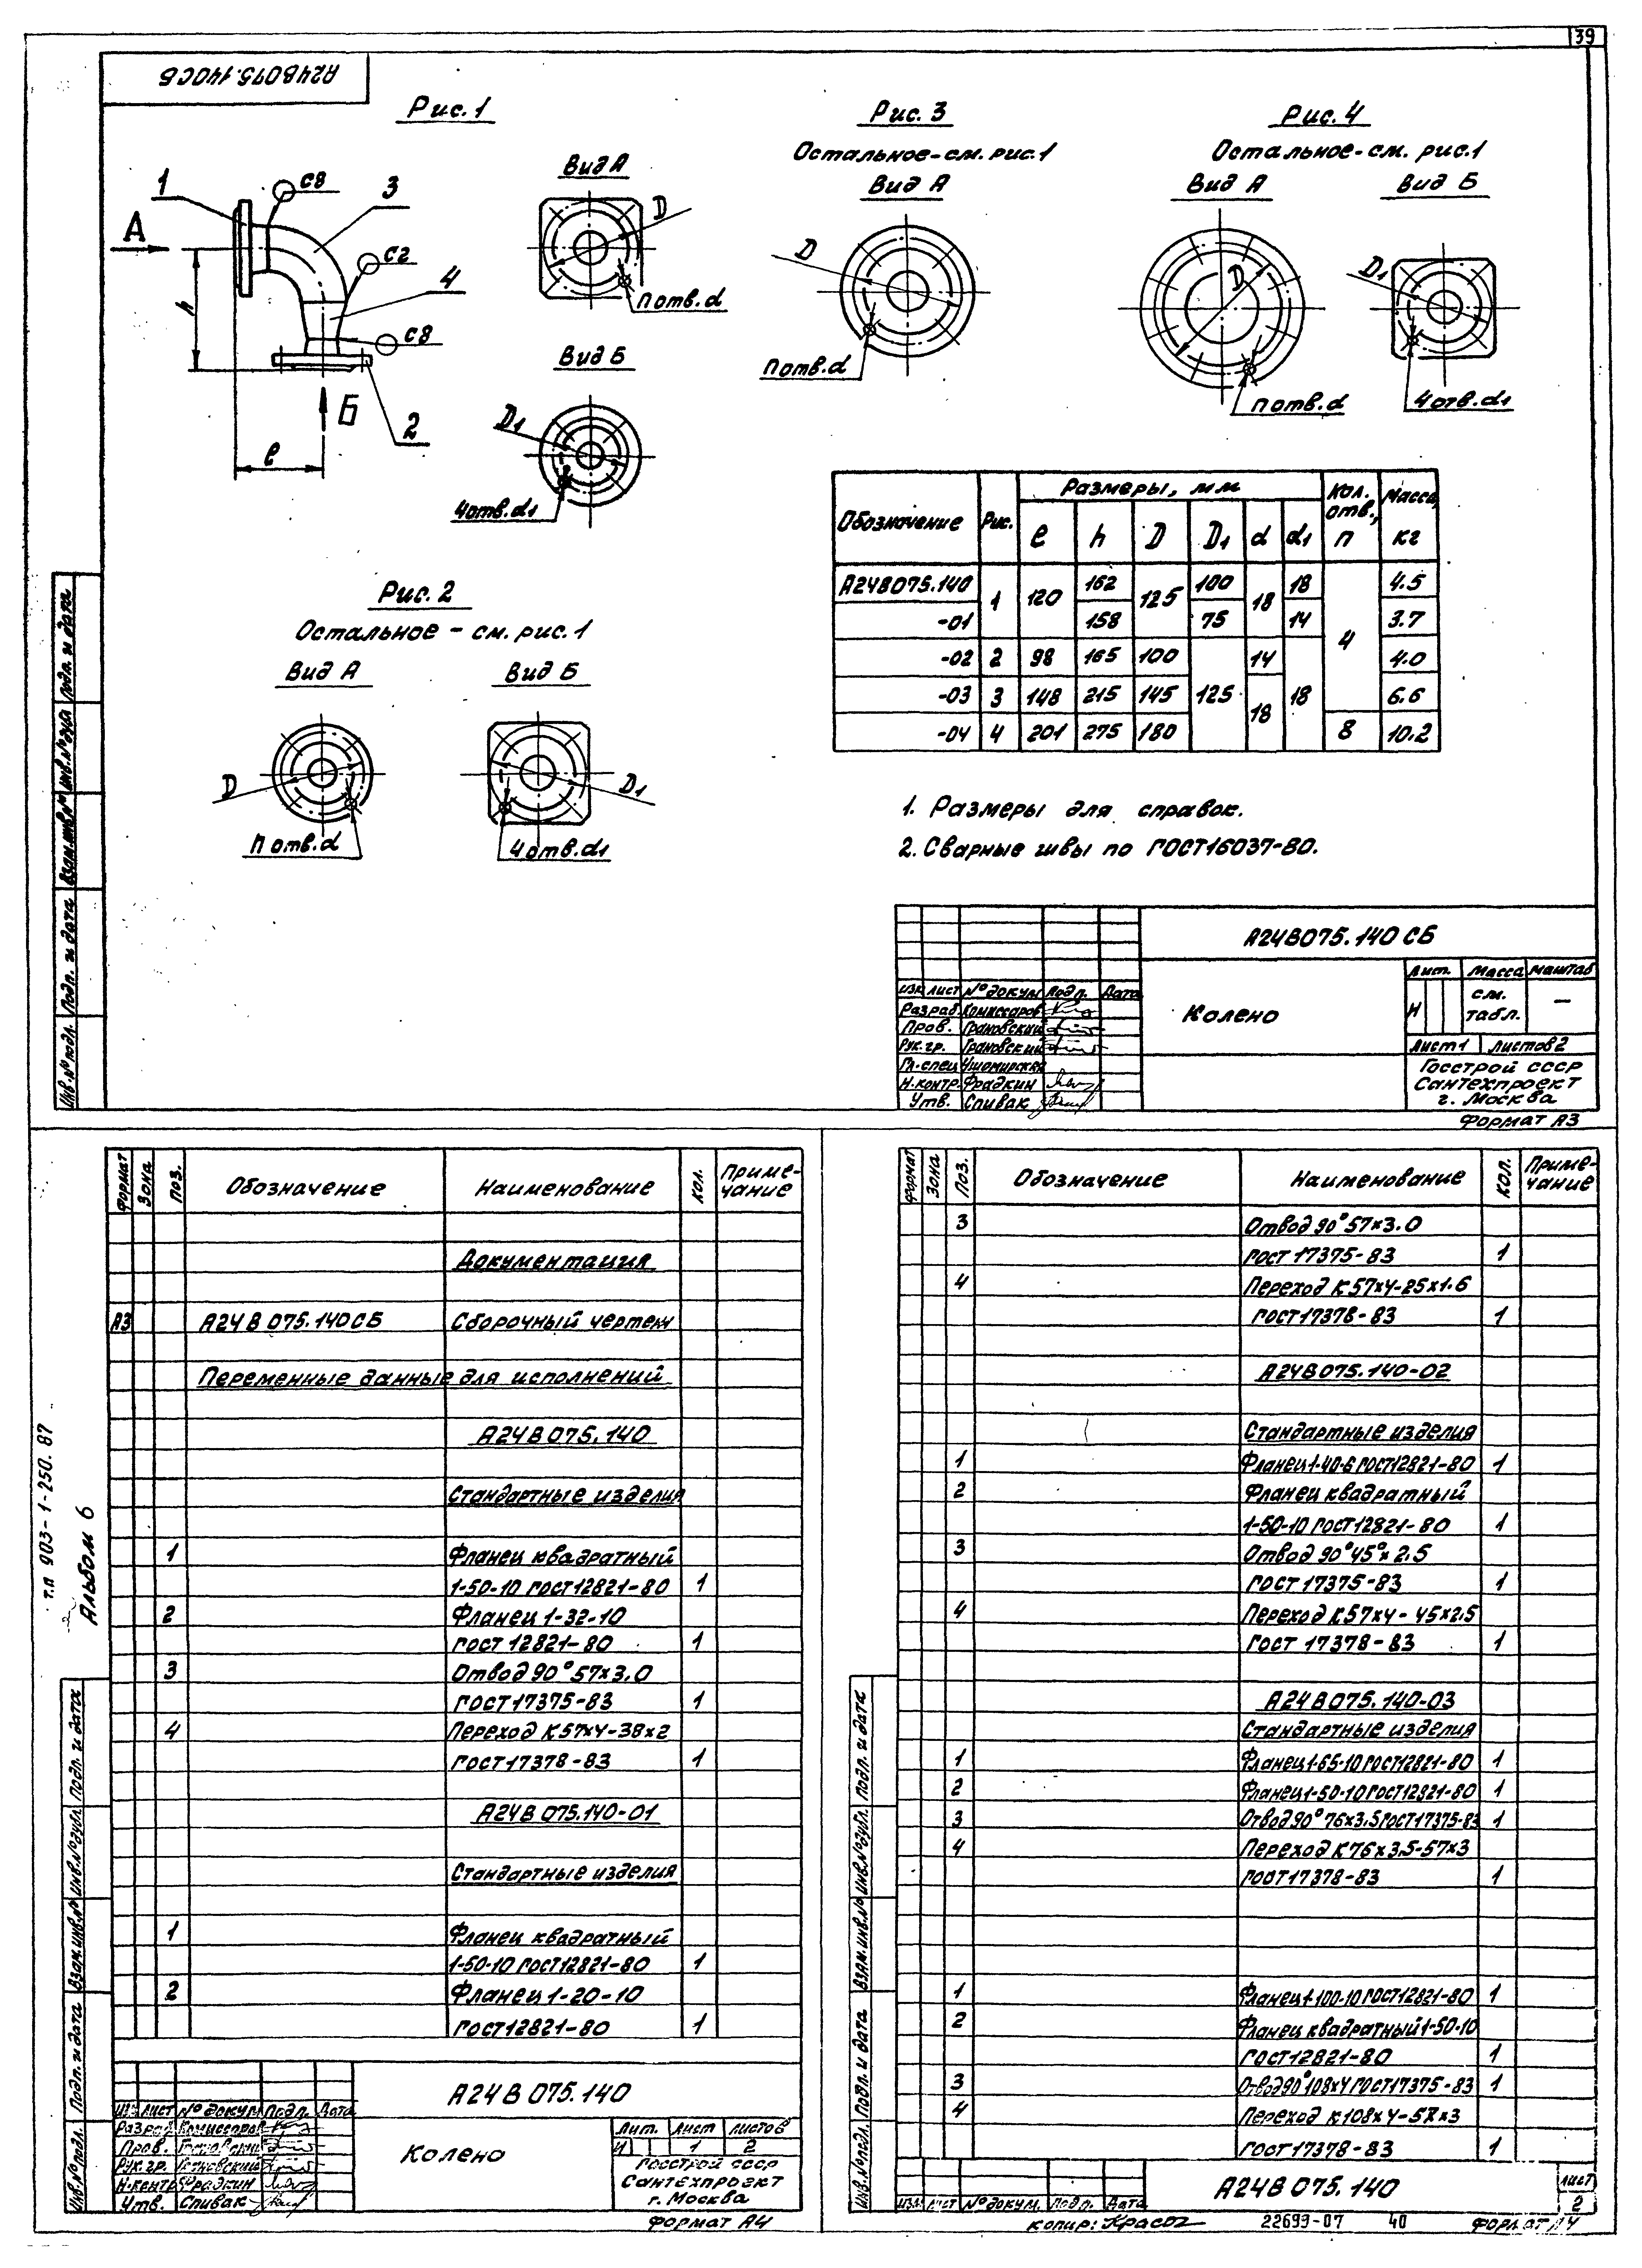 39
А24В075.140СБ
Рис.1
1
с8
3
А
с2
4
h
с8
Б
2
е
Вид А
D
п отв.d
Вид Б
D1
4отв.d1
Рис. 3
Остальное-см. рис.1
Вид А
D
п отв.d
Рис.4
Остальное-см. рис.1
Вид А
Вид Б
D
D1
п отв.d
4отв.d1
Рис. 2
Остальное - см. рис. 1
Вид А
Вид Б
D
D1
п отв.d
4отв.d1
Обозначение Рис. Размеры, мм Кол. отв., п Масса, кг
е h D D1 d d1
А24В075.140 1 120 162 125 100 18 18 4 4.5
-01 158 75 14 3.7
-02 2 98 165 100 125 14 18 4.0
-03 3 148 215 145 18 6.6
-04 4 201 275 180 8 10.2
1. Размеры для справок.
2. Сварные швы по ГОСТ16037-80.
Инв.№подл. Подп. и дата Взам.инв.№ Инв.№дубл. Подп. и дата
А24В075.140 СБ
Изм Лист №докум Подп. Дата
Разраб Комиссаров
Пров. Грановский
Рук.гр. Грановский
Гл.спец
Н.контр. Фрадкин
Утв. Спивак
Колено
Лит. Масса Масштаб
И см. табл. —
Лист1 Листов2
Госстрой СССР
Сантехпроект
г. Москва
Формат А3
т.п 903-1-250.87
Альбом 6
Формат Зона Поз. Обозначение Наименование Кол. Приме-чание
Документация
А3 А24В075.140СБ Сборочный чертеж
Переменные данные для исполнений
А24В075.140
Стандартные изделия
1 Фланец квадратный
1-50-10 ГОСТ12821-80 1
2 Фланец 1-32-10
ГОСТ 12821-80 1
3 Отвод 90° 57×3.0
ГОСТ17375-83 1
4 Переход К57×4-38×2
ГОСТ17378-83 1
А24В075.140-01
Стандартные изделия
1 Фланец квадратный
1-50-10 ГОСТ12821-80 1
2 Фланец 1-20-10
ГОСТ12821-80 1
Инв.№подл. Подп. и дата Взам.инв.№ Инв.№дубл. Подп. и дата
А24В075.140
Изм Лист №докум Подп. Дата
Разраб Комиссаров
Пров. Грановский
Рук.гр. Грановский
Н.контр Фрадкин
Утв. Спивак
Колено
Лит. Лист Листов
И 1 2
Госстрой СССР
Сантехпроект
г. Москва
Формат А4
Формат Зона Поз. Обозначение Наименование Кол. Приме-чание
3 Отвод 90° 57×3.0
ГОСТ 17375-83 1
4 Переход К57×4-25×1.6
ГОСТ17378-83 1
А24В075.140-02
Стандартные изделия
1 Фланец1-40-6 ГОСТ12821-80 1
2 Фланец квадратный
1-50-10 ГОСТ12821-80 1
3 Отвод 90° 45°× 2.5
ГОСТ 17375-83 1
4 Переход К57×4-45×2.5
ГОСТ 17378-83 1
А24В075.140-03
Стандартные изделия
1 Фланец1-65-10ГОСТ12821-80 1
2 Фланец1-50-10ГОСТ12821-80 1
3 Отвод90°76×3.5ГОСТ17375-83 1
4 Переход К76×3.5-57×3
ГОСТ17378-83 1
1 Фланец1-100-10ГОСТ12821-80 1
2 Фланец квадратный1-50-10
ГОСТ12821-80 1
3 Отвод90°108×4ГОСТ17375-83 1
4 Переход К108×4-57×3
ГОСТ17378-83 1
Инв.№подл. Подп. и дата Взам.инв.№ Инв.№дубл. Подп. и дата
Изм Лист №докум. Подп. Дата
А24В075.140
Лист
2
копир:
22699-07 40
Формат А4